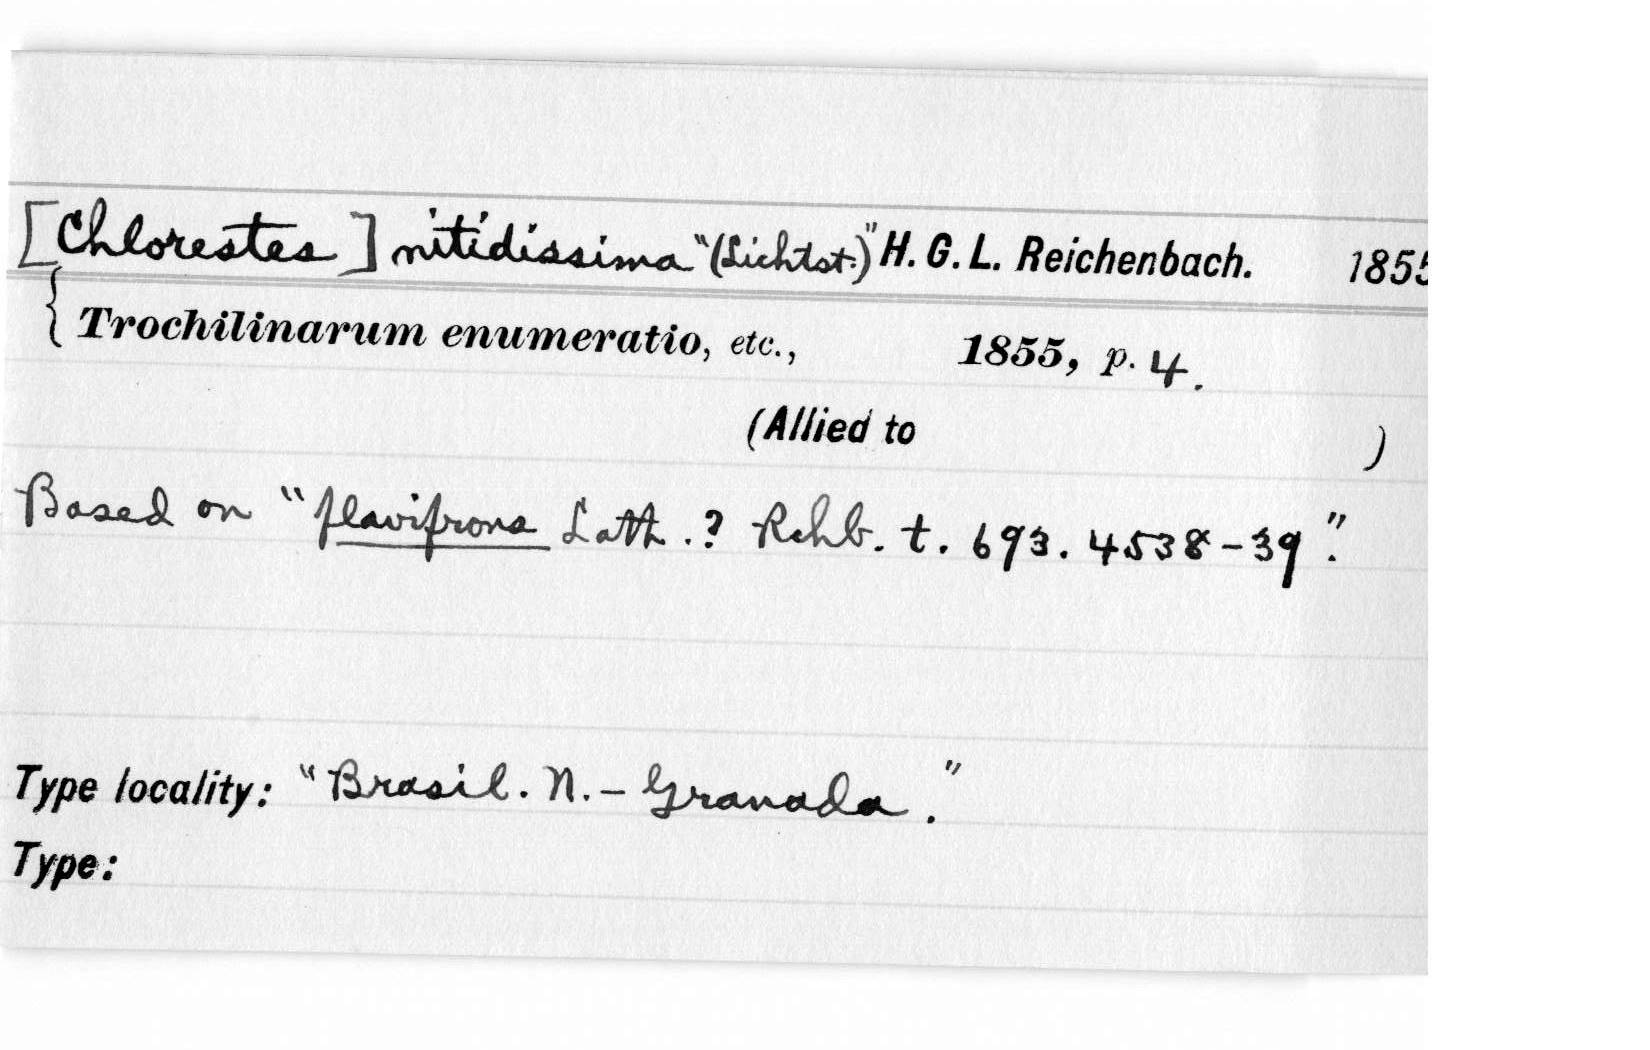 [Chlorestes] nitidissima "(Lichtst.)" H. G. L. Reichenbach. 1855
{ Trochilinarum enumeratio, etc., 1855, p. 4.
(Allied to )
Based on "flavifrons Lath.? Rchb. t. 693. 4538-39".
Type locality: "Brasil. N.- Granada."
Type: